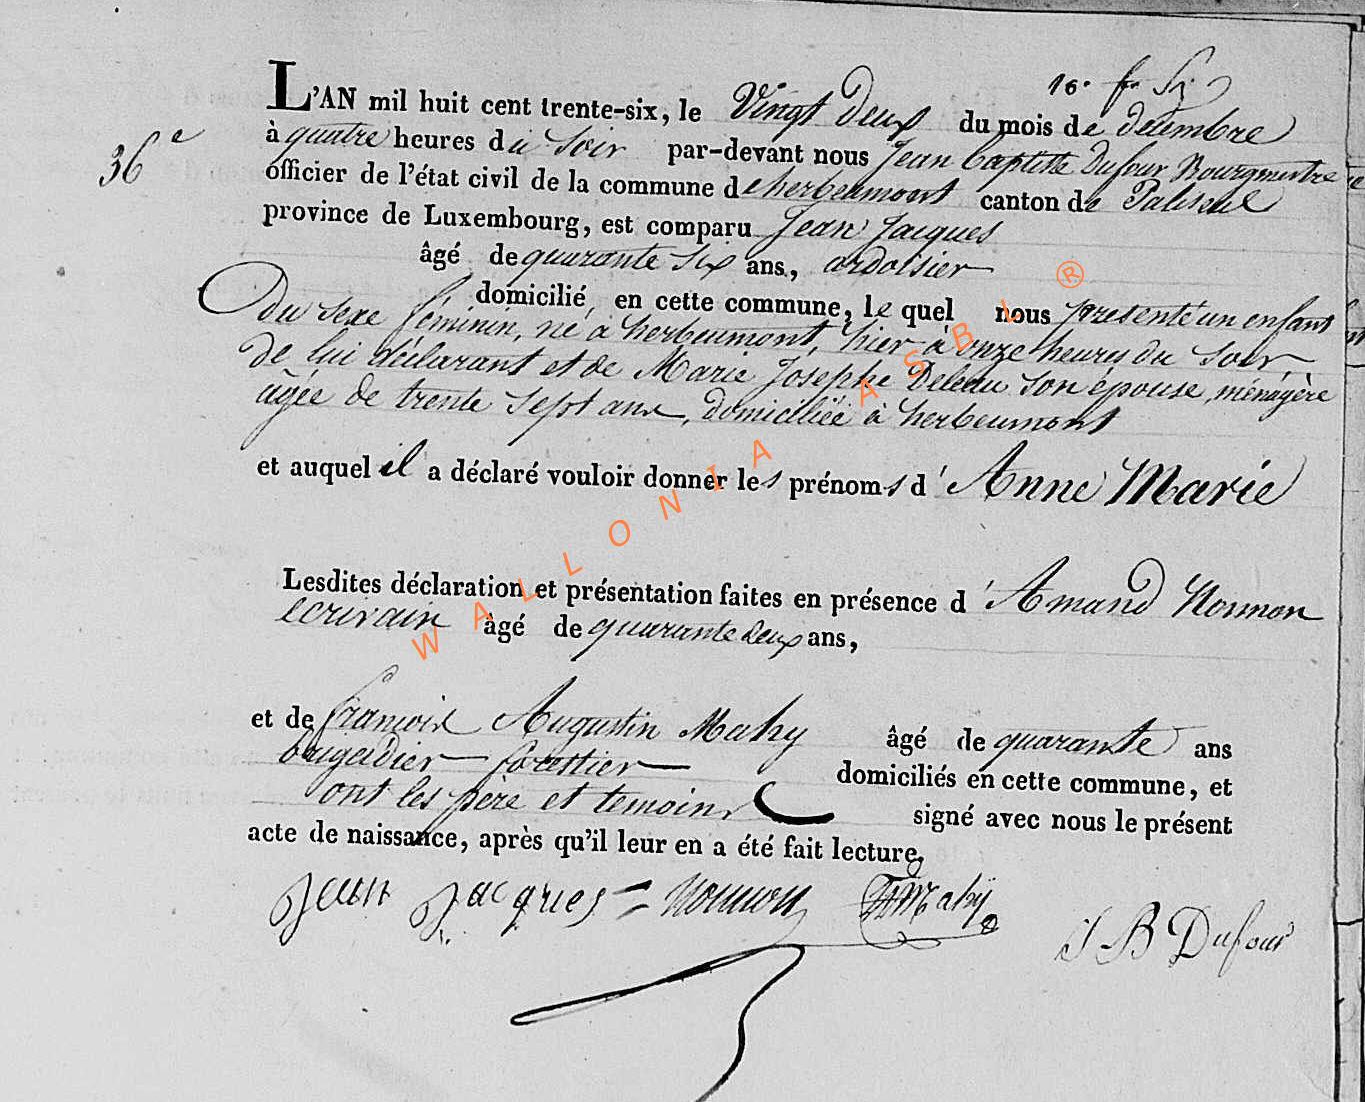 16. f. Sx
L'AN mil huit cent trente-six, le Vingt deux du mois de decembre
36e
à quatre heures du soir par-devant nous Jean Baptiste Dufour Bourgmestre
officier de l'état civil de la commune de herbeumont canton de Paliseul
province de Luxembourg, est comparu Jean Jacques
âgé de quarante six ans, ardoisier
domicilié en cette commune, le quel nous presenté un enfant
du sexe féminin, né à herbeumont, hier à onze heures du soir
de lui déclarant et de Marie Josephe Deleau son épouse, ménagère
âgée de trente sept ans, domiciliée à herbeumont
et auquel il a déclaré vouloir donner les prénoms d'Anne Marie
Lesdites déclaration et présentation faites en présence d'Amand Nonnon
ecrivain âgé de quarante deux ans,
et de françois Augustin Mahy âgé de quarante ans
brigadier forestier domiciliés en cette commune, et
ont les pere et temoins signé avec nous le présent
acte de naissance, après qu'il leur en a été fait lecture.
Jean Jacques Nonnon Mahy J B Dufour
WALLONIA ASBL ®